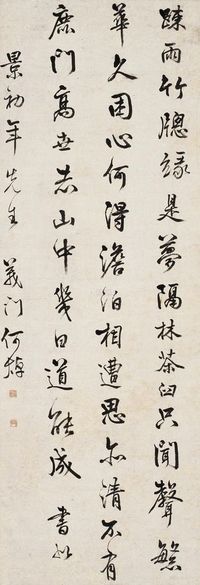 踈雨竹牕緣是夢隔林茶臼只聞聲繁
華久困心何得澹泊相遭思亦清不有
鹿門高世志山中幾日道能成 書似
景初年先生 義門何焯